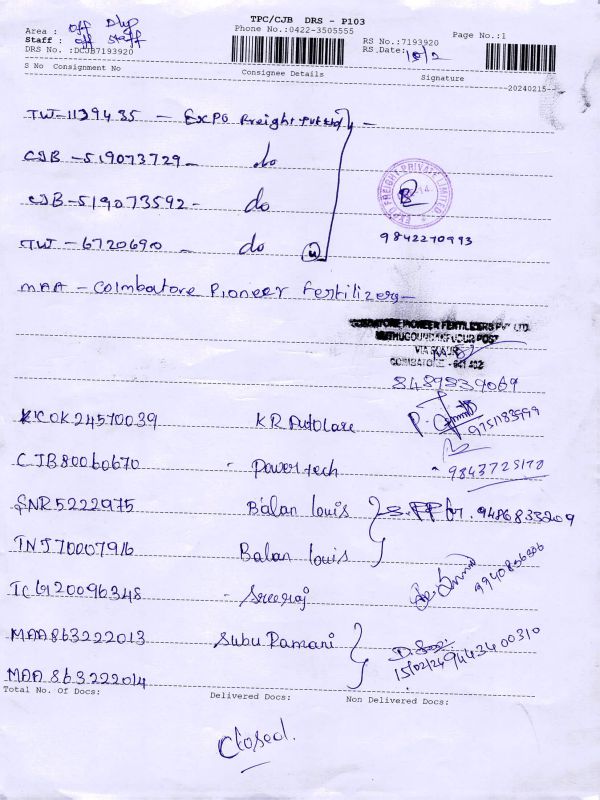 TPC/CJB DRS - P103
Area : off Dlep
Phone No.:0422-3505555
Page No.:1
Staff : off staff
RS No.:7193920
DRS No.:DCJB7193920
RS.Date: 15/2
S No Consignment No
Consignee Details
Signature
20240215
TUT-1139435 - EXPO Freight Pvt Ltd
CJB-519073729 - do
CJB-519073592 - do
TUT-6720690 - do
EXPO FREIGHT PRIVATE LIMITED
9842270993
MAA - Coimbatore Pioneer Fertilizers
COIMBATORE PIONEER FERTILIZERS PVT LTD.
MUTHUGOUNDAKPUDUR POST
VIA SULUR
COIMBATORE - 641 402
8489839069
KCOK24570039 KR Autocare
9751183999
CJB80060670 - Powertech
9843725170
SNR5222975 Balan louis
9486833209
TNJ70007916 Balan louis
TCG120096348 - Sreeraj
9940856606
MAA863222013 Subu Ramani
9443400310
15/02/24
MAA 863222014
Total No. Of Docs:
Delivered Docs:
Non Delivered Docs:
Closed.